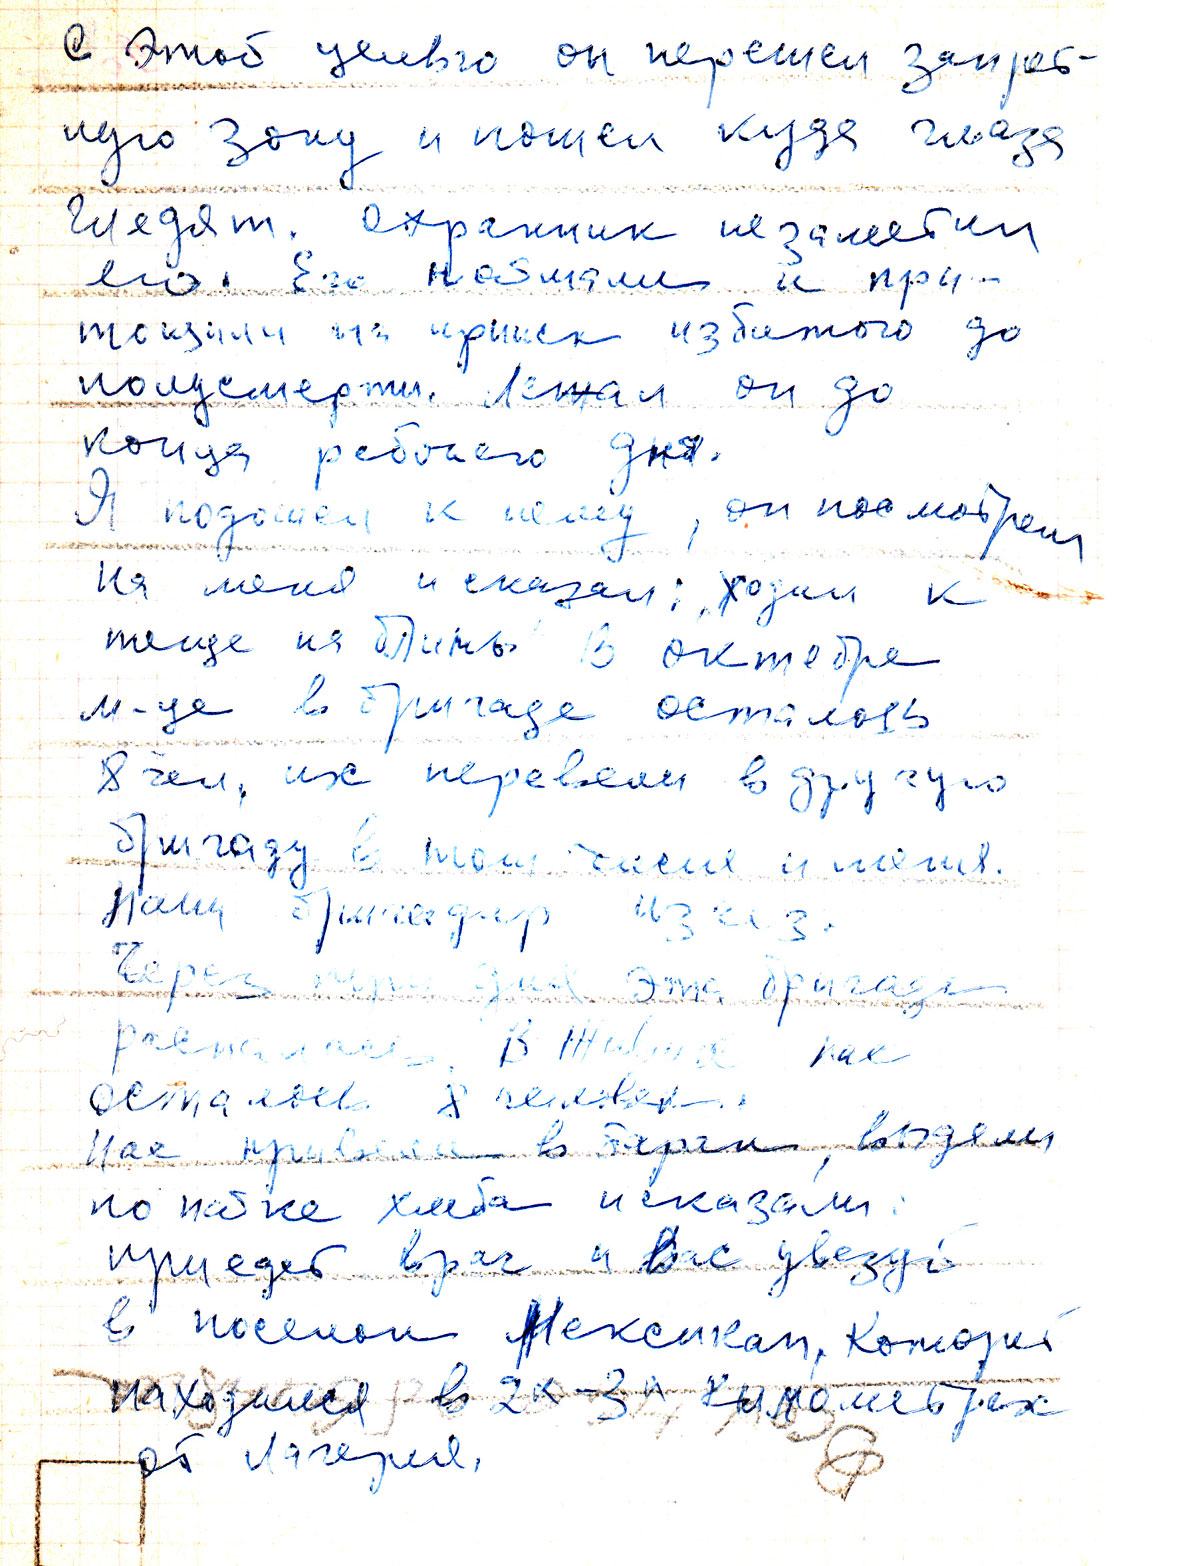 С этой целью он перешел запрет-
ную зону и пошел куда глаза
гледят. Охранник незаметил
его. Его поймали и при-
тощили на прииск избитого до
полусмерти. Лежал он до
конца рабочего дня.
Я подошел к нему, он посмотрел
на меня и сказал: „ходил к
теще на блины" В октебре
м-це в бригаде осталось
8 чел, их перевели в другую
бригаду в том числе и меня.
Наш бригадир изчез.
Через три дня эта бригада
распалась. В живых нас
осталось 8 человек.
Нас привели в барак, выдели
по пайке хлеба и сказали:
приедет врач и Вас увезут
в поселок Мексикан, который
находился в 2х-3х километрах
от лагеря.